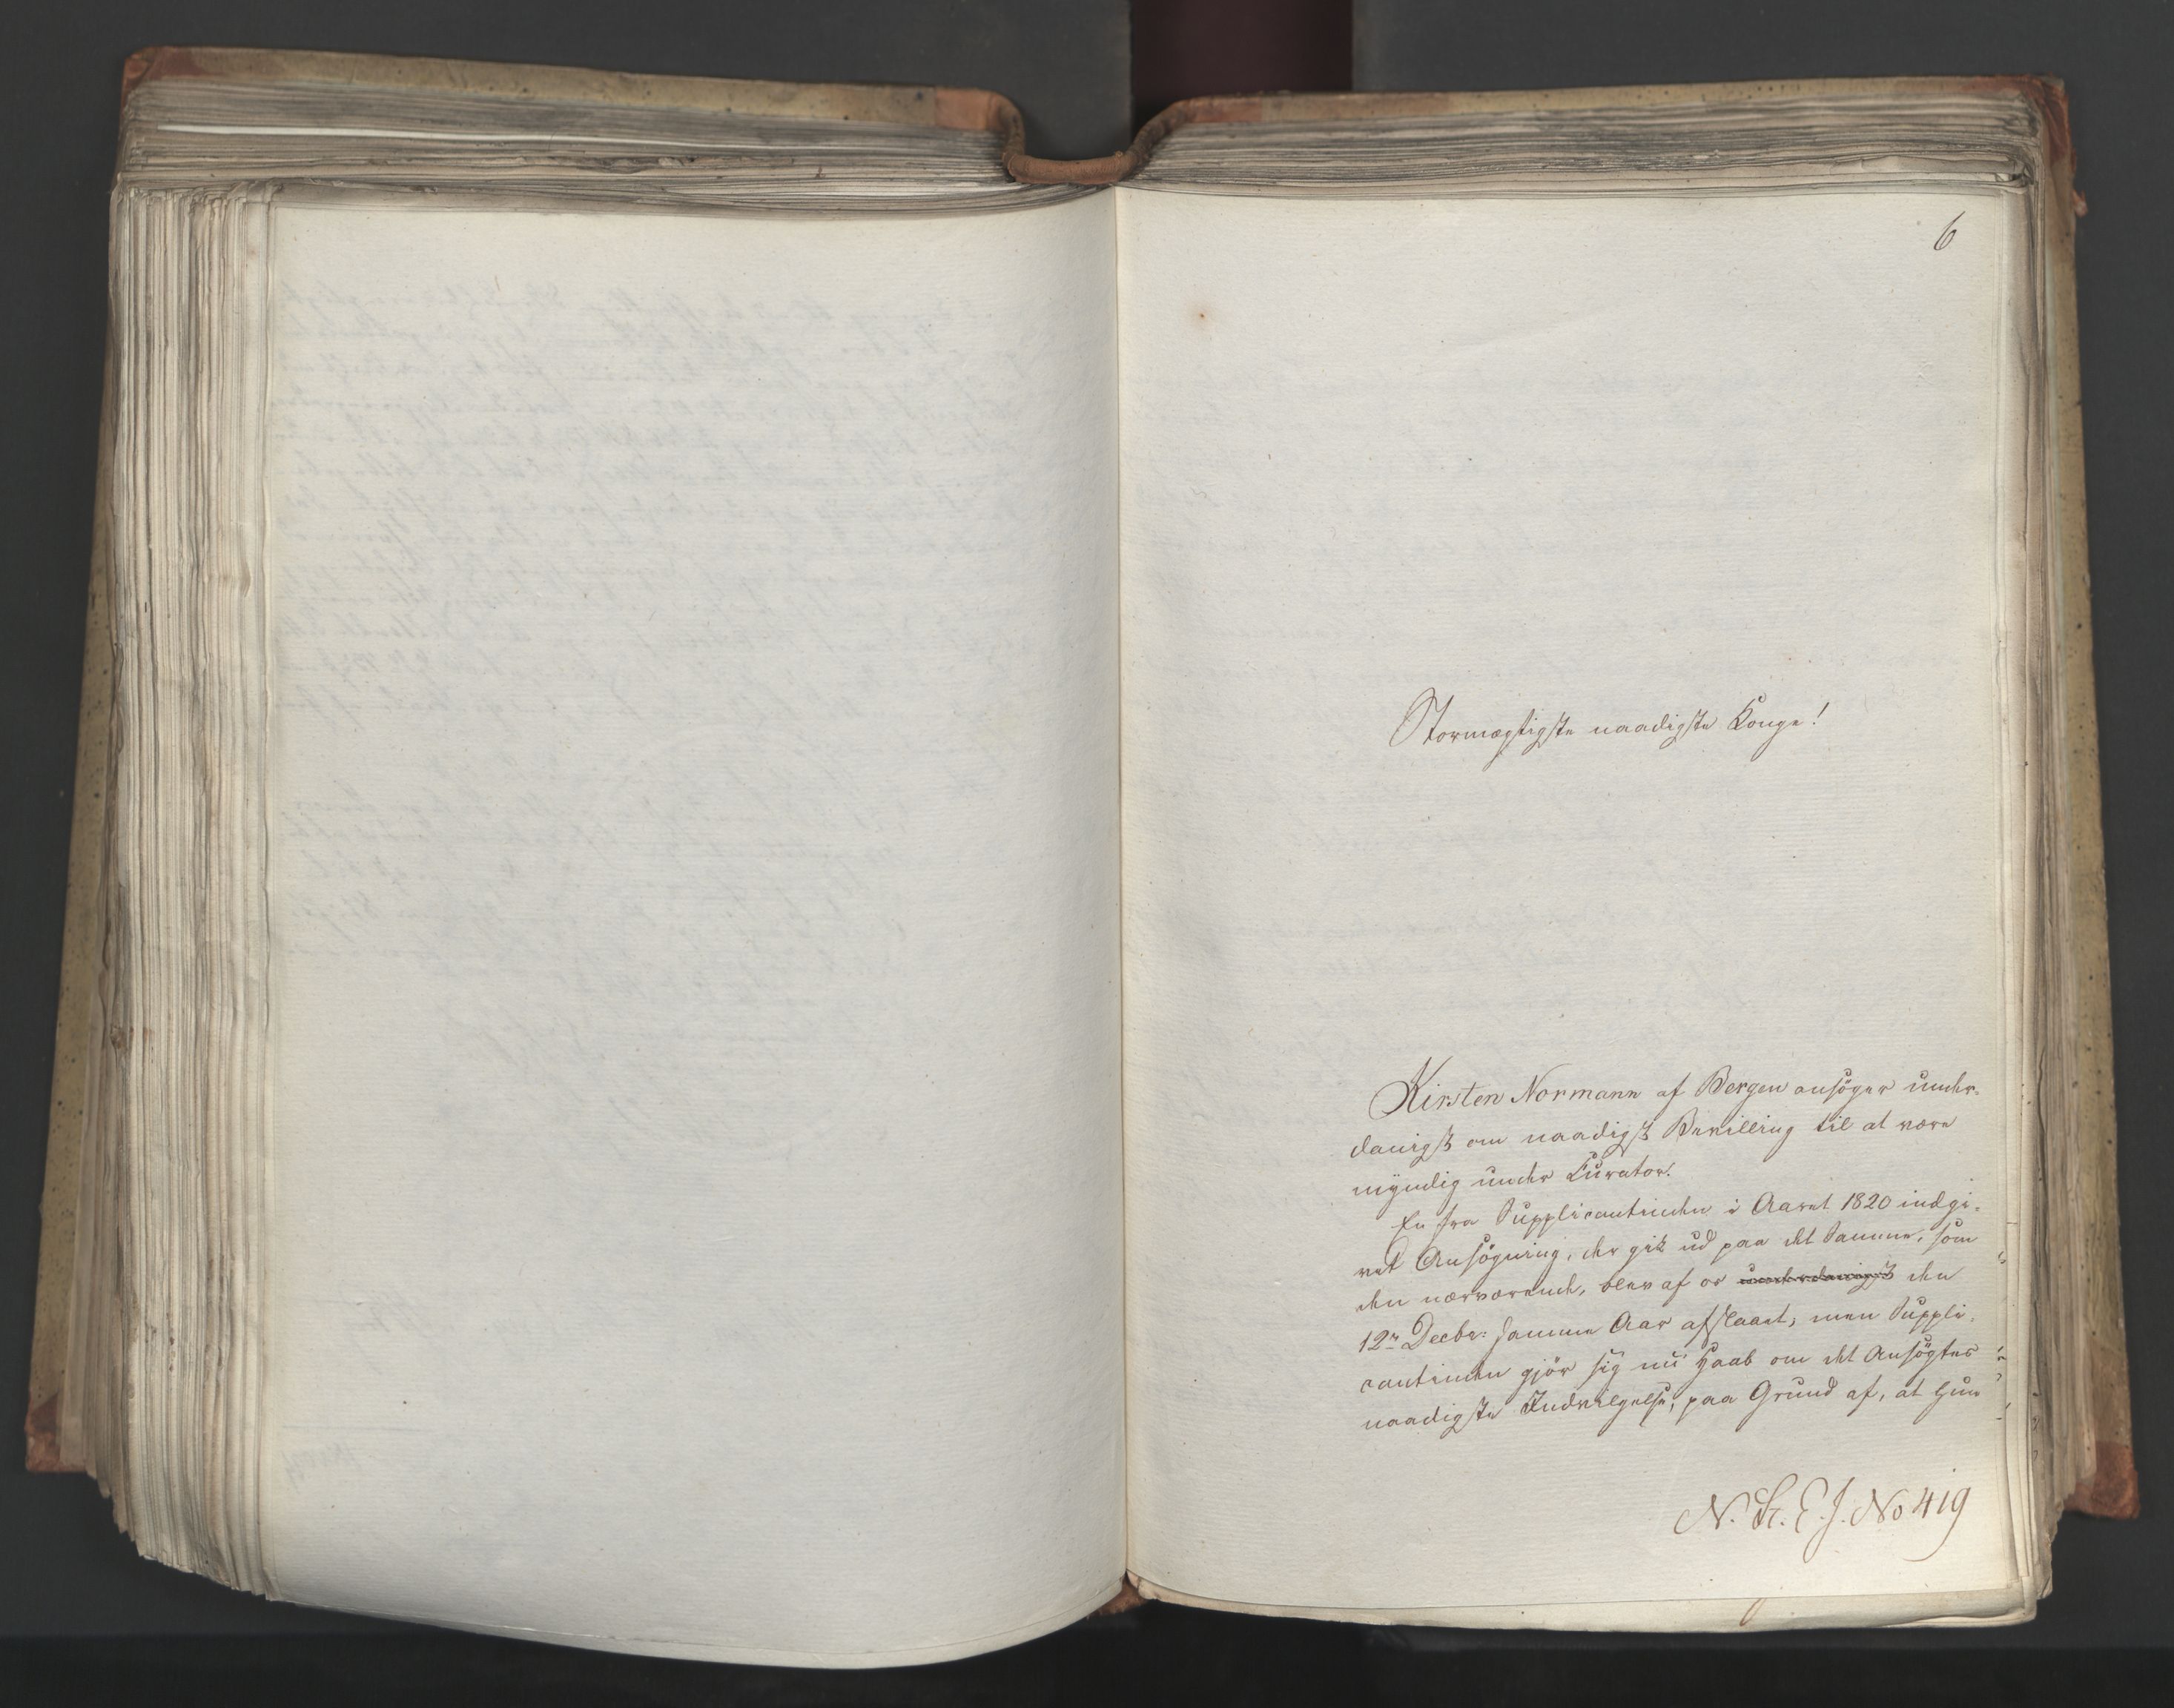 6
Stormægtigste naadigste Konge!
Kirsten Normann af Bergen ansöger under-
danigst om naadigst Bevilling til at være
myndig under Curator.
En fra Supplicantinden i Aaret 1820 indgi-
vet Ansögning, der gik ud paa det Samme, som
den nærværende, blev af os underdanigst den
12te Decbr: samme Aar afslaaet; men Suppli-
cantinden gjör sig nu Haab om det Ansögtes
naadigste Indvilgelse, paa Grund af, at hun
N. St. E. J. No 419